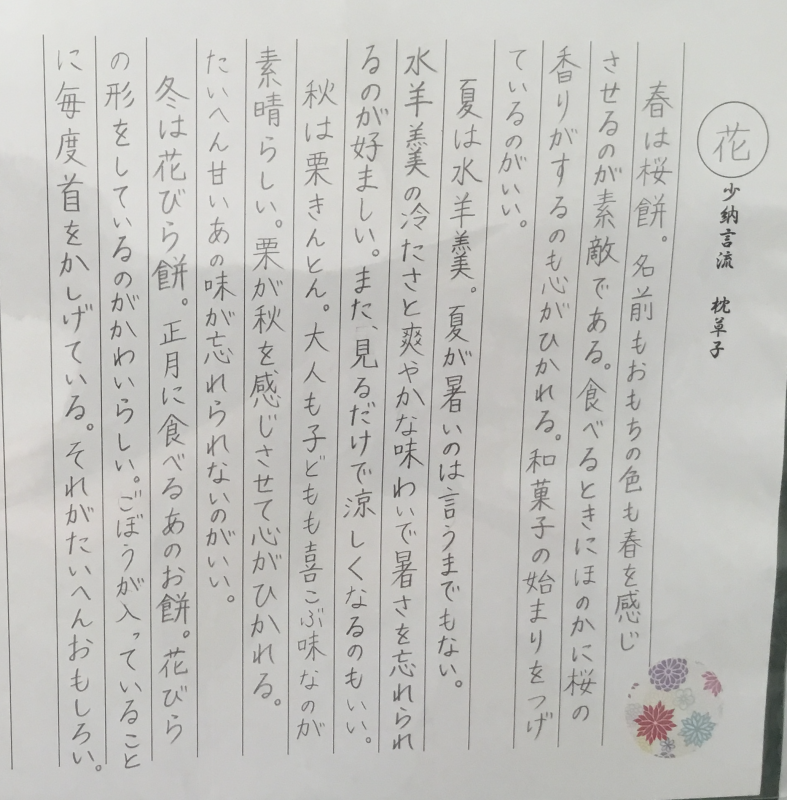 花
少納言流 枕草子
春は桜餅。名前もおもちの色も春を感じ
させるのが素敵である。食べるときにほのかに桜の
香りがするのも心がひかれる。和菓子の始まりをつげ
ているのがいい。
夏は水羊羹。夏が暑いのは言うまでもない。
水羊羹の冷たさと爽やかな味わいで暑さを忘れられ
るのが好ましい。また、見るだけで涼しくなるのもいい。
秋は栗きんとん。大人も子どもも喜こぶ味なのが
素晴らしい。栗が秋を感じさせて心がひかれる。
たいへん甘いあの味が忘れられないのがいい。
冬は花びら餅。正月に食べるあのお餅。花びら
の形をしているのがかわいらしい。ごぼうが入っていること
に毎度首をかしげている。それがたいへんおもしろい。